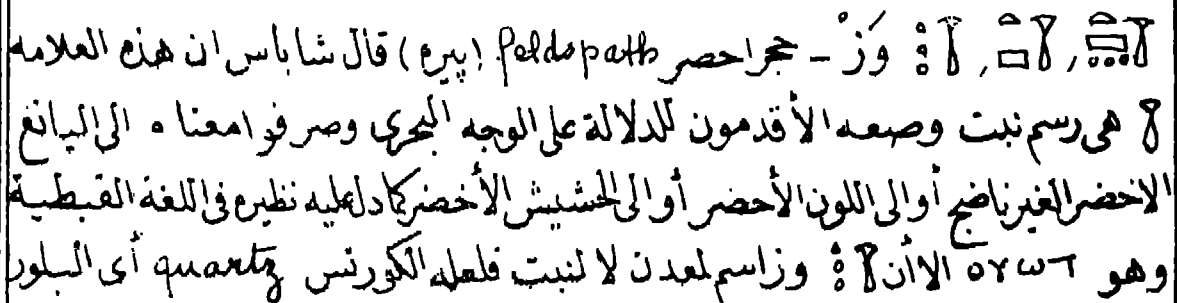 وَزْ - حجر احضر feldspath (پیره) قال شاباس ان هذه العلامه
هى رسم نبت وصعه الأقدمون للدلالة على الوجه البحرى وصرفوا معناه الى اليانغ
الاخضر الغير ناضج أوالى اللون الأحضر أوالى الحشيش الأخضر كما دل عليه نظيره فى اللغة القبطية
وهو ⲟⲩⲱⲧ الا أن وزاسم لمعدن لا لنبت فلعله الكورتس quartz أى البلور